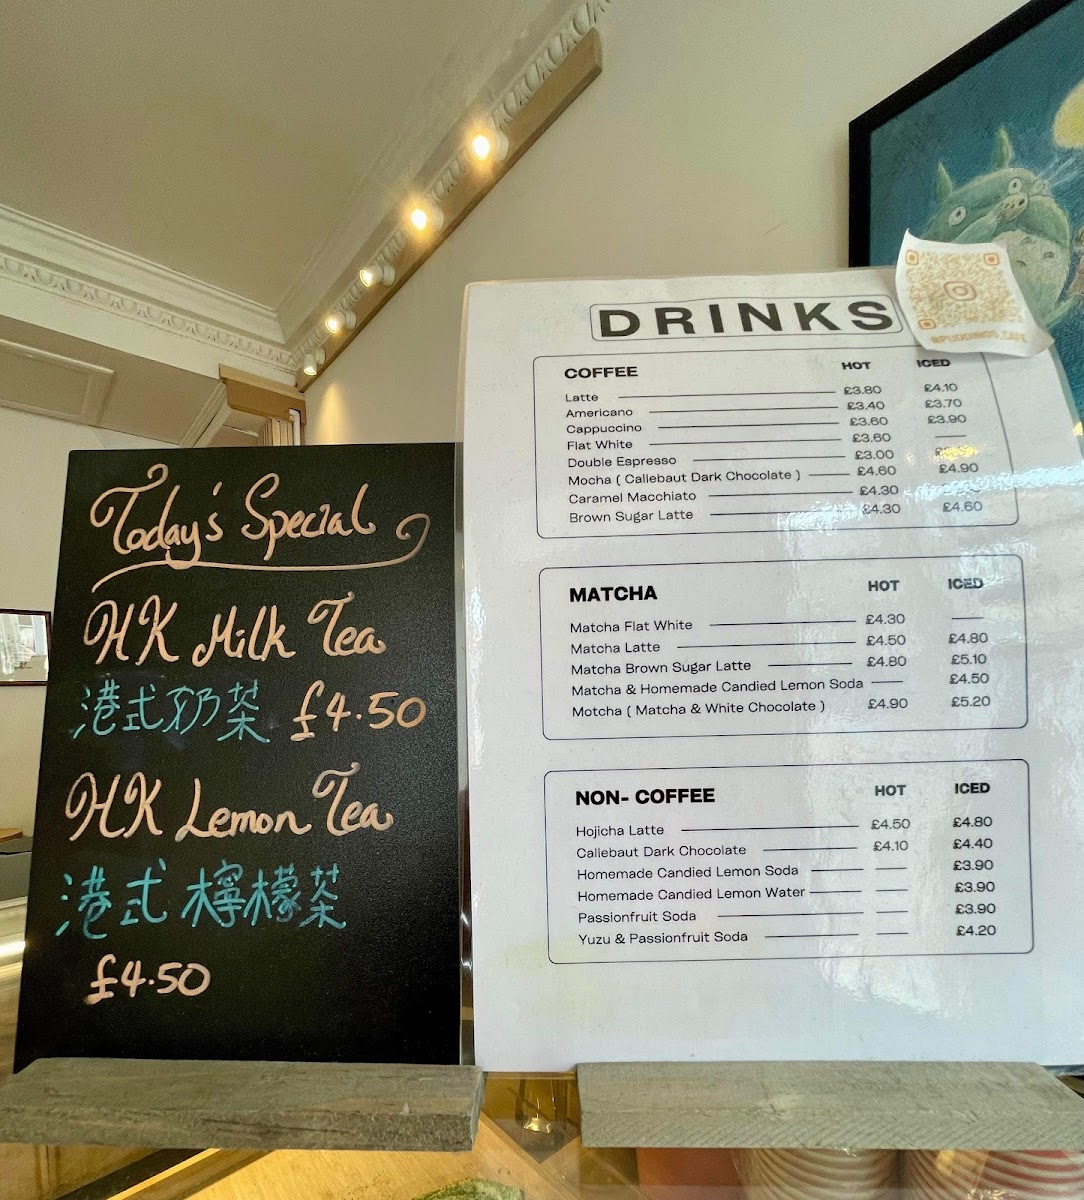 Today's Special
HK Milk Tea
港式奶茶 £4.50
HK Lemon Tea
港式檸檬茶
£4.50
DRINKS
@PUDDINGS.CAFE
COFFEE HOT ICED
Latte £3.80 £4.10
Americano £3.40 £3.70
Cappuccino £3.60 £3.90
Flat White £3.60
Double Espresso £3.00
Mocha ( Callebaut Dark Chocolate ) £4.60 £4.90
Caramel Macchiato £4.30
Brown Sugar Latte £4.30 £4.60
MATCHA HOT ICED
Matcha Flat White £4.30
Matcha Latte £4.50 £4.80
Matcha Brown Sugar Latte £4.80 £5.10
Matcha & Homemade Candied Lemon Soda £4.50
Motcha ( Matcha & White Chocolate ) £4.90 £5.20
NON- COFFEE HOT ICED
Hojicha Latte £4.50 £4.80
Callebaut Dark Chocolate £4.10 £4.40
Homemade Candied Lemon Soda £3.90
Homemade Candied Lemon Water £3.90
Passionfruit Soda £3.90
Yuzu & Passionfruit Soda £4.20